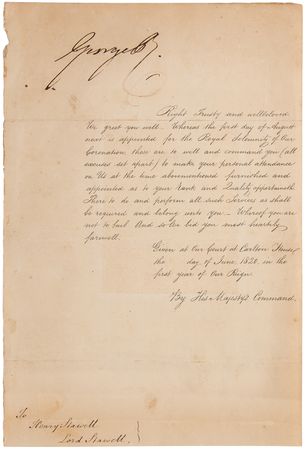 George R.
Right Trusty and wellbeloved
We greet you well. Whereas the first day of August
next is appointed for the Royal Solemnity of Our
Coronation, these are to will and command you (all
excuses set apart) to make your personal attendance
on Us at the time abovementioned furnished and
appointed as to your Rank and Quality appertaineth
There to do and perform all such Services as shall
be required and belong unto you – Whereof you are
not to fail And so We bid you most heartily
farewell.
Given at Our Court at Carlton House
the day of June 1820, in the
first year of Our Reign
By His Majesty's Command.
To
Henry Stawell
Lord Stawell.